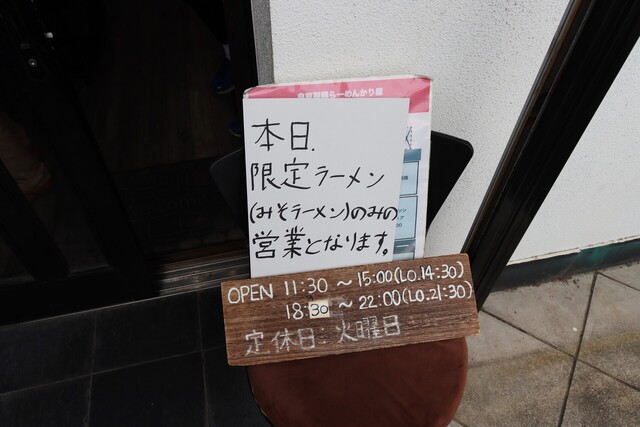 本日.
限定ラーメン
(みそラーメン)のみの
営業となります。
OPEN 11:30 ～ 15:00(L.O.14:30)
18:30 ～ 22:00(L.O.21:30)
定休日:火曜日